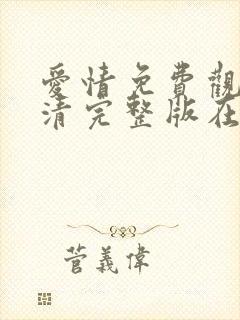 愛情免費觀
清完整版在
菅義偉